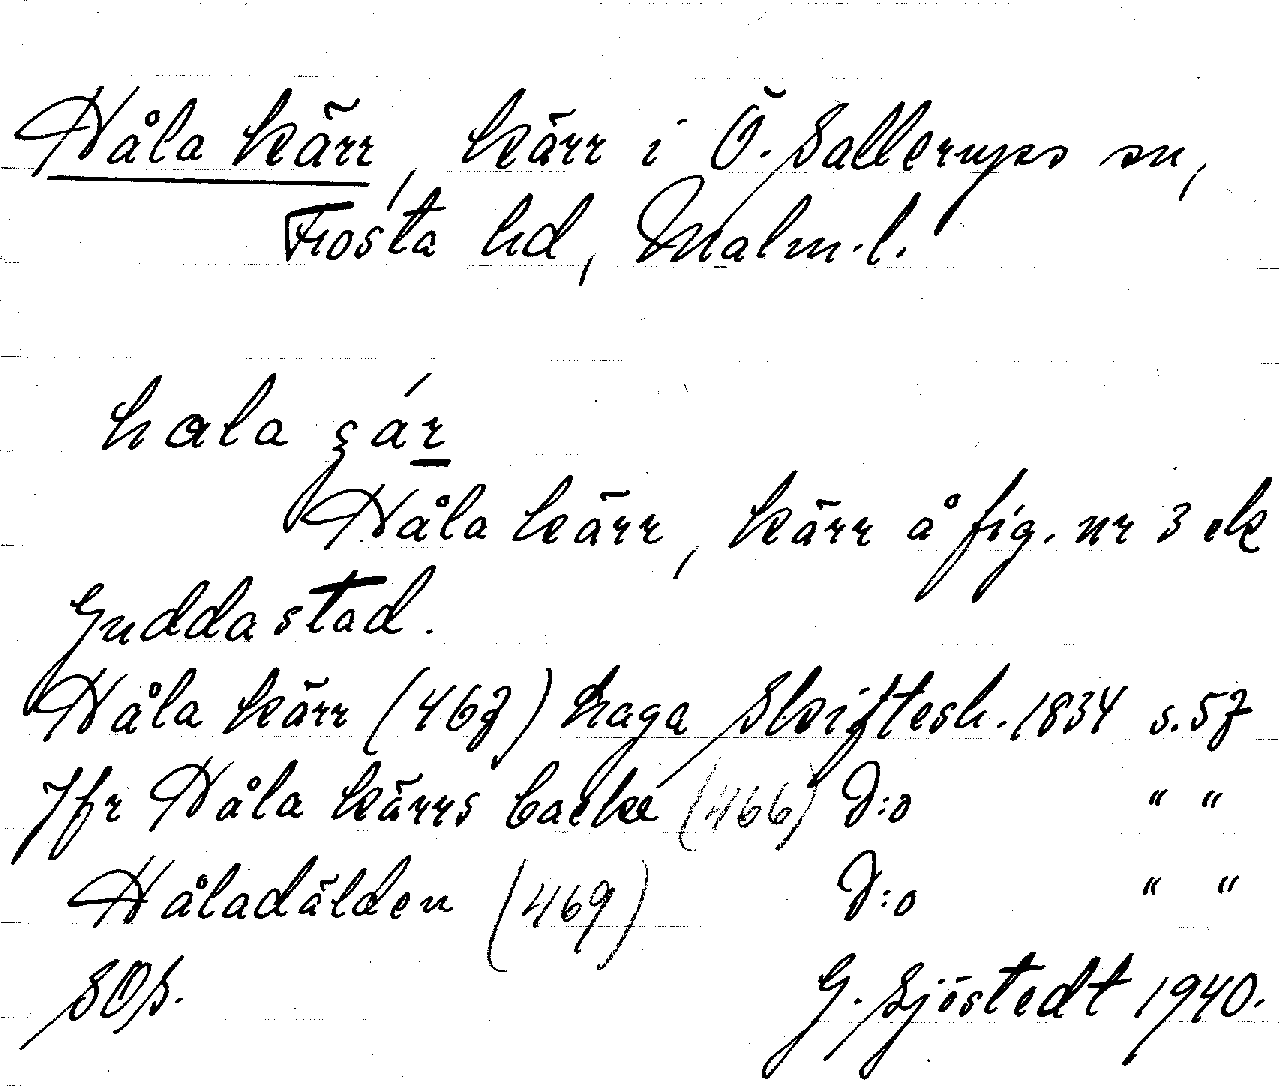 Håla kärr, kärr i Ö. Sallerups sn,
Frosta hd, Malm. l.
hala ʂár
Håla kärr, kärr å fig. nr 3 ek
Guddastad.
Håla kärr (467) haga Skiftesh. 1834 s. 57
Jfr Håla kärrs backe (466) D:o " "
Håladälden (469) D:o " "
SOS. G. Sjöstedt 1940.